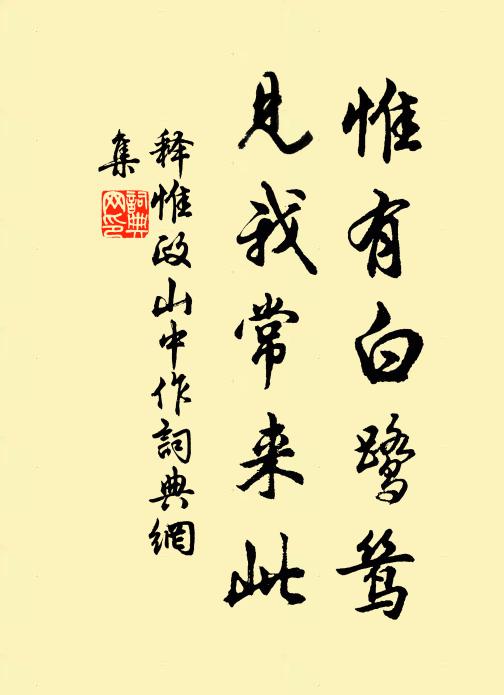 惟有白鹭鸶
见我常来此
释惟政山中作詞典網
集
詞典
网印